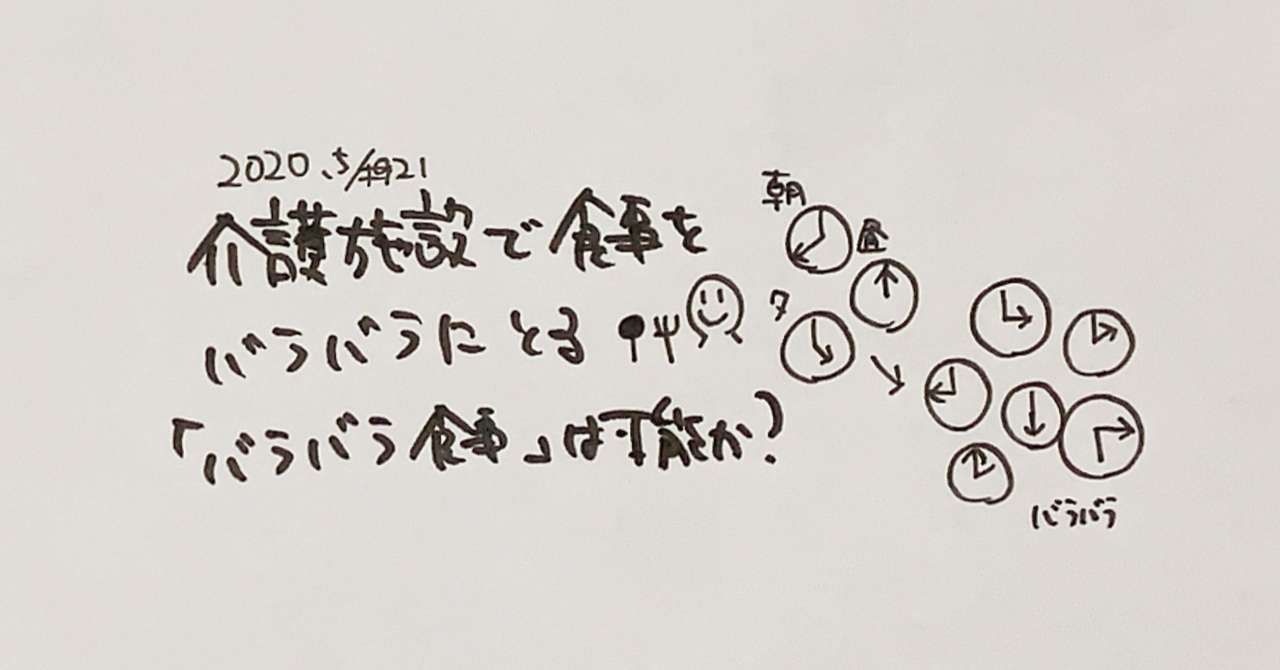 2020.5/21
介護施設で食事を
バラバラにとる
「バラバラ食事」は可能か?
朝
昼
夕
バラバラ